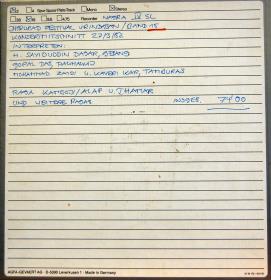 4 Spur-Spuren-Piste-Track Mono Stereo
38 19 9,5 4,75 Recorder NAGRA IV SL
DHRUPAD FESTIVAL VRINDABAN / BAND 15
KONZERTMITSCHNITT 27/3/82
INTERPRETEN:
H. SAYIDUDDIN DAGAR, GESANG
GOPAL DAS, PAKHAWAJ
MOHAMMAD ZAHIDI U. KAVERI KAR, TAMBURAS
RAGA ALAP U. DHAMAR
UND WEITERE RAGAS INSGES. 74'00
AGFA-GEVAERT AG D-5090 Leverkusen 1 · Made in Germany